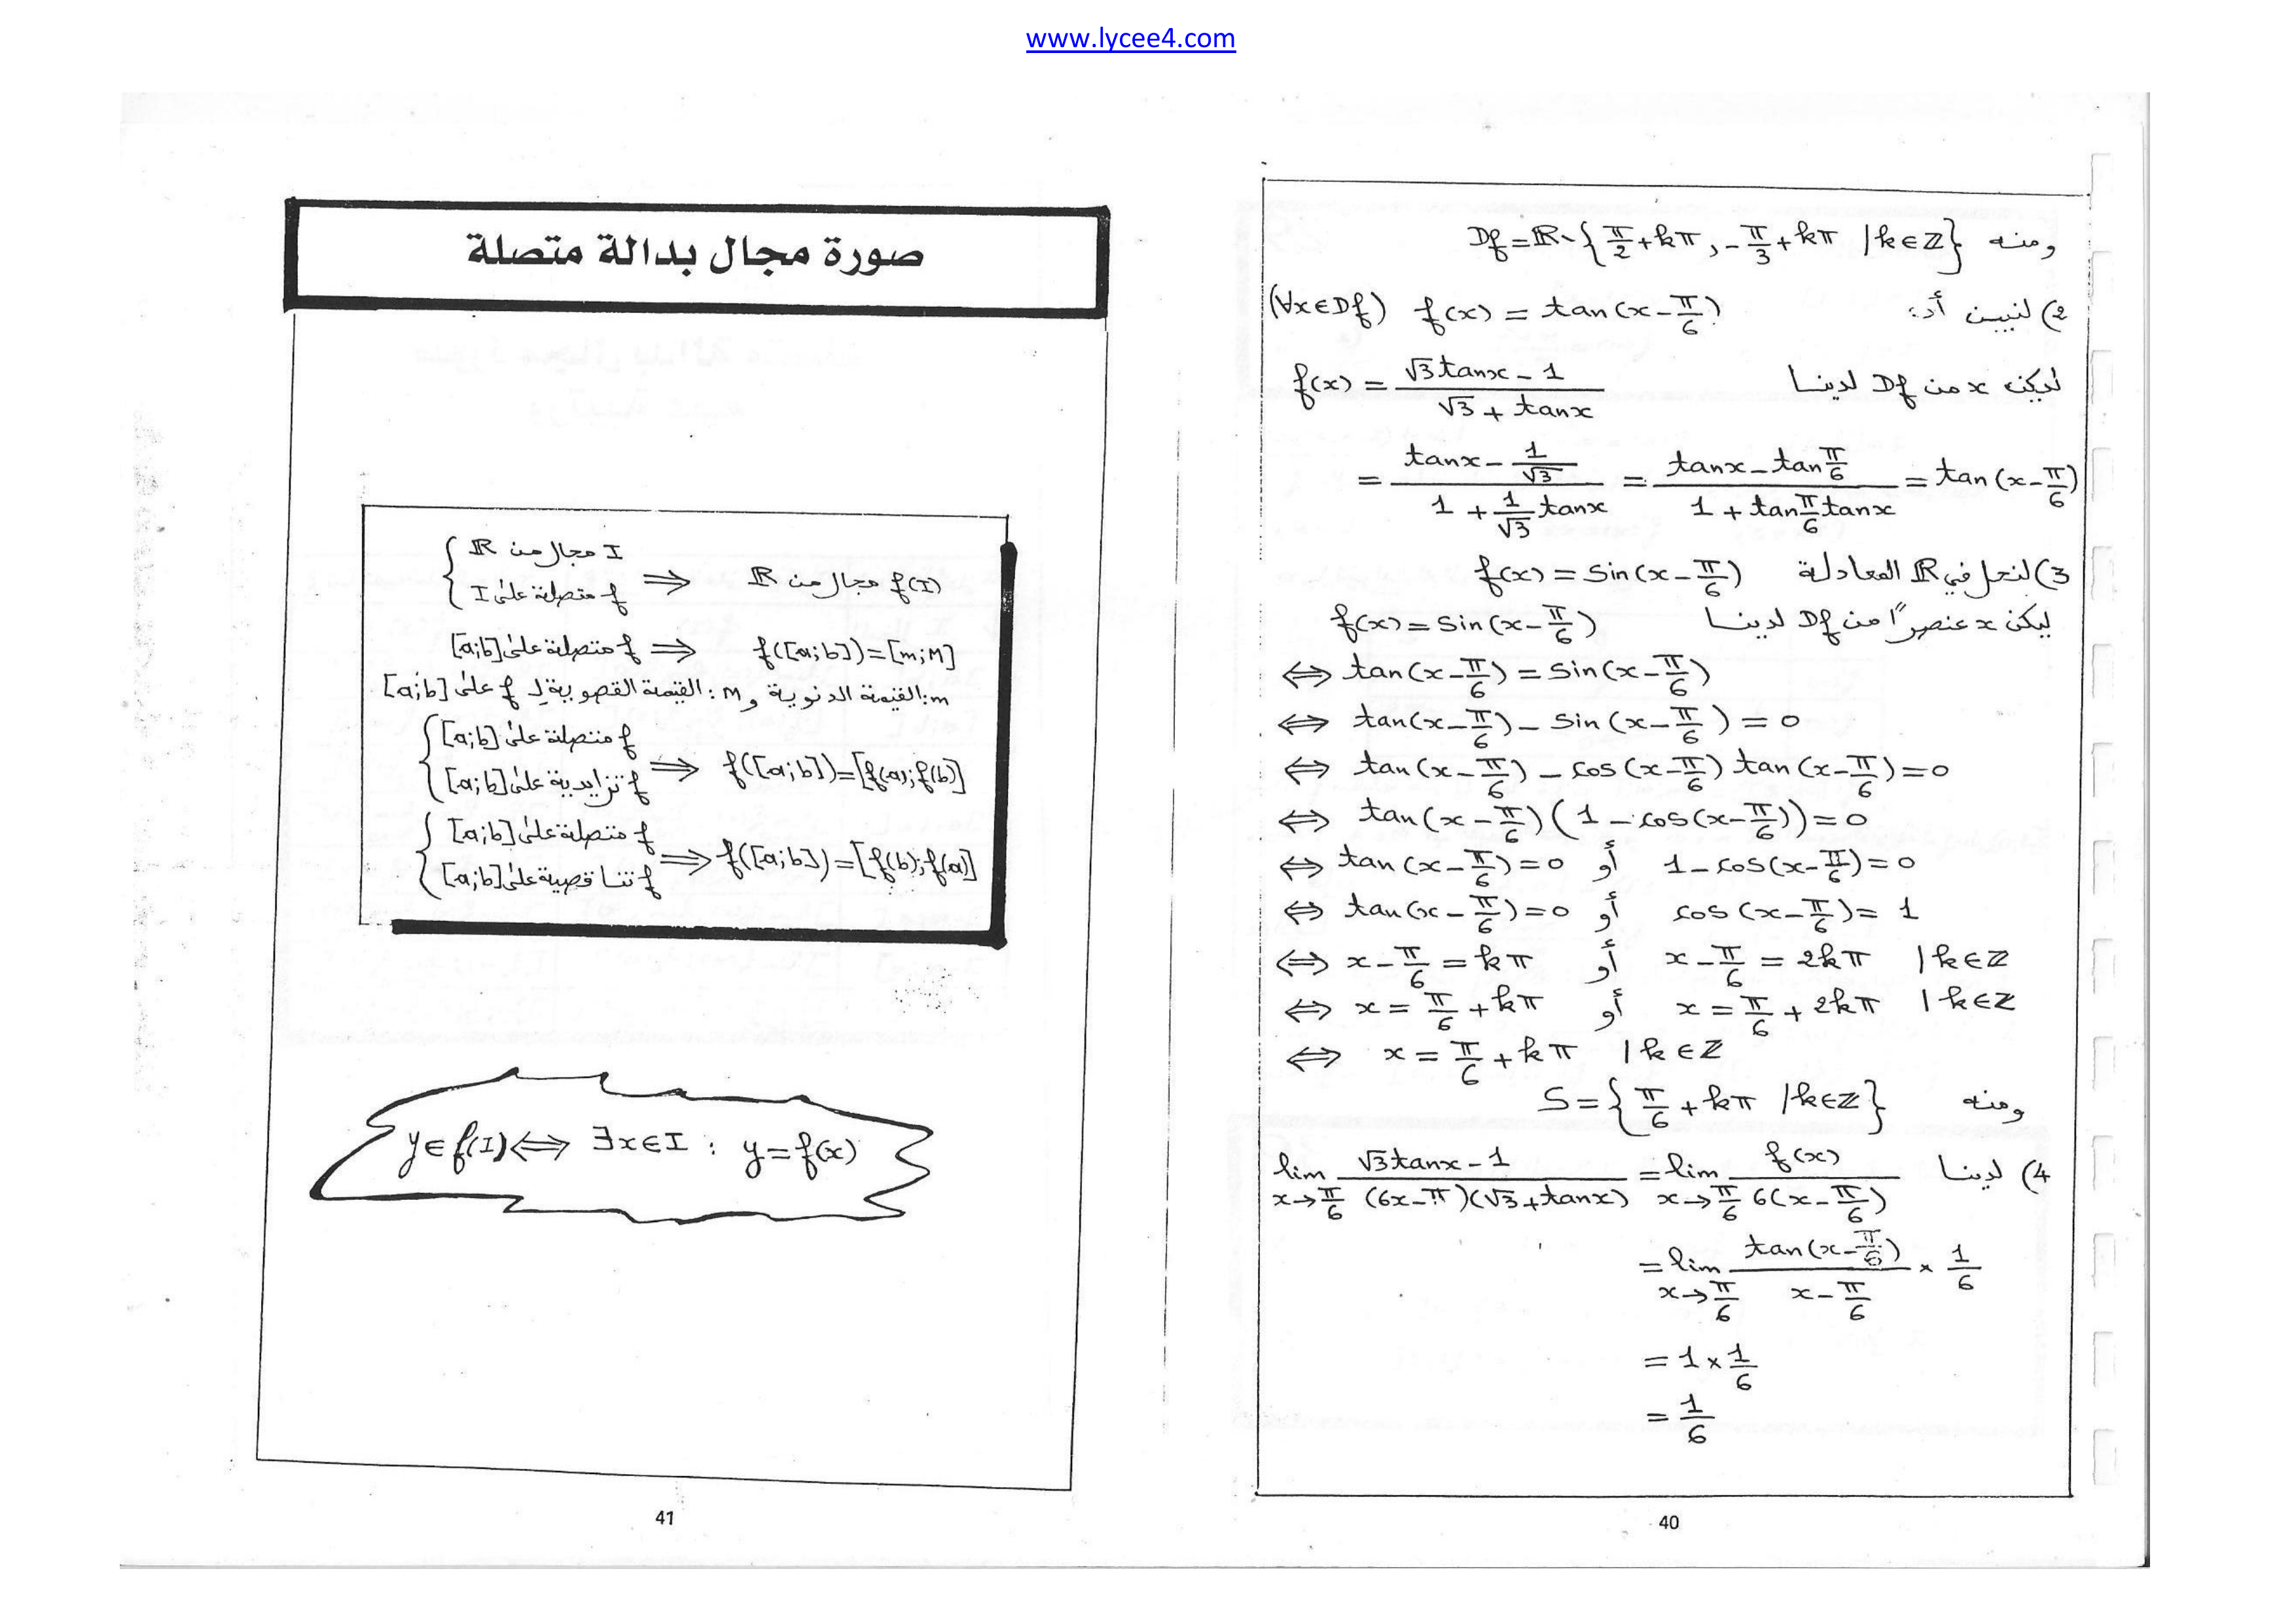 www.lycee4.com
ومنه Df = ℝ - { π/2 + kπ , -π/3 + kπ / k ∈ ℤ }
2) لنبين أن: (∀x ∈ Df) f(x) = tan(x - π/6)
ليكن x من Df لدينا f(x) = (√3 tanx - 1)/(√3 + tanx)
= (tanx - 1/√3)/(1 + 1/√3 tanx) = (tanx - tan π/6)/(1 + tan π/6 tanx) = tan(x - π/6)
3) لنحل في ℝ المعادلة f(x) = sin(x - π/6)
ليكن x عنصرًا من Df لدينا f(x) = sin(x - π/6)
⇔ tan(x - π/6) = sin(x - π/6)
⇔ tan(x - π/6) - sin(x - π/6) = 0
⇔ tan(x - π/6) - cos(x - π/6) tan(x - π/6) = 0
⇔ tan(x - π/6)(1 - cos(x - π/6)) = 0
⇔ tan(x - π/6) = 0 أو 1 - cos(x - π/6) = 0
⇔ tan(x - π/6) = 0 أو cos(x - π/6) = 1
⇔ x - π/6 = kπ أو x - π/6 = 2kπ / k ∈ ℤ
⇔ x = π/6 + kπ أو x = π/6 + 2kπ / k ∈ ℤ
⇔ x = π/6 + kπ / k ∈ ℤ
ومنه S = { π/6 + kπ / k ∈ ℤ }
4) لدينا lim x→π/6 (√3 tanx - 1)/((6x - π)(√3 + tanx)) = lim x→π/6 f(x)/(6(x - π/6))
= lim x→π/6 tan(x - π/6)/(x - π/6) × 1/6
= 1 × 1/6
= 1/6
40
صورة مجال بدالة متصلة
{ I مجال من ℝ
f متصلة على I ⇒ f(I) مجال من ℝ
f متصلة على [a;b] ⇒ f([a;b]) = [m;M]
m: القيمة الدنوية و M: القيمة القصوية لـ f على [a;b]
{ f متصلة على [a;b]
f تزايدية على [a;b] ⇒ f([a;b]) = [f(a);f(b)]
{ f متصلة على [a;b]
f تناقصية على [a;b] ⇒ f([a;b]) = [f(b);f(a)]
y ∈ f(I) ⇔ ∃x ∈ I : y = f(x)
41